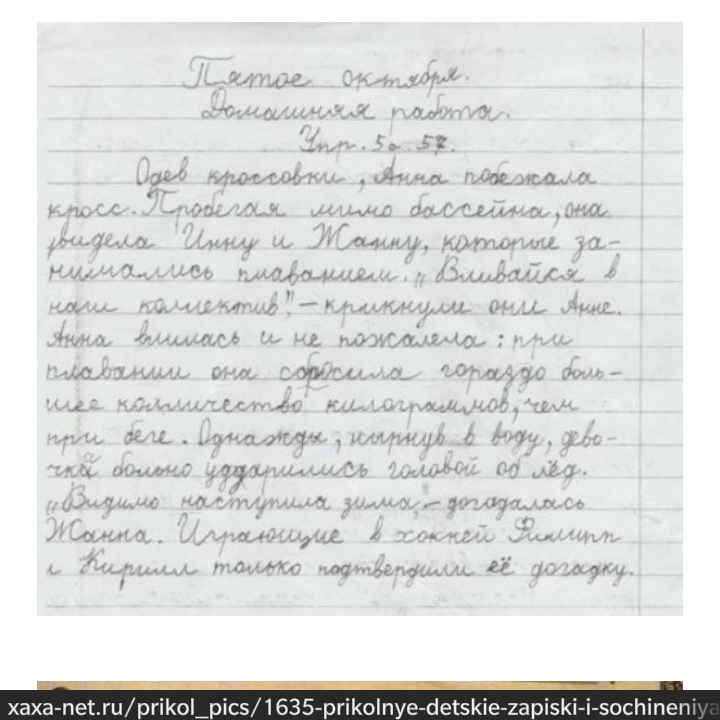 Пятое октября.
Домашняя работа.
Упр. 5а 57.
Одев кроссовки, Анна побежала
кросс. Пробегая мимо бассейна, она
увидела Инну и Жанну, которые за-
нимались плаванием. „Вливайся в
наш коллектив", – крикнули они Анне.
Анна влилась и не пожалела: при
плавании она сбросила гораздо боль-
шее колличество килограммов, чем
при беге. Однажды, нырнув в воду, дево-
чка больно уддарились головой об лёд.
„Видимо наступила зима," – догадалась
Жанна. Играющие в хоккей Филипп
и Кирилл только подтвердили её догадку.
xaxa-net.ru/prikol_pics/1635-prikolnye-detskie-zapiski-i-sochineniya